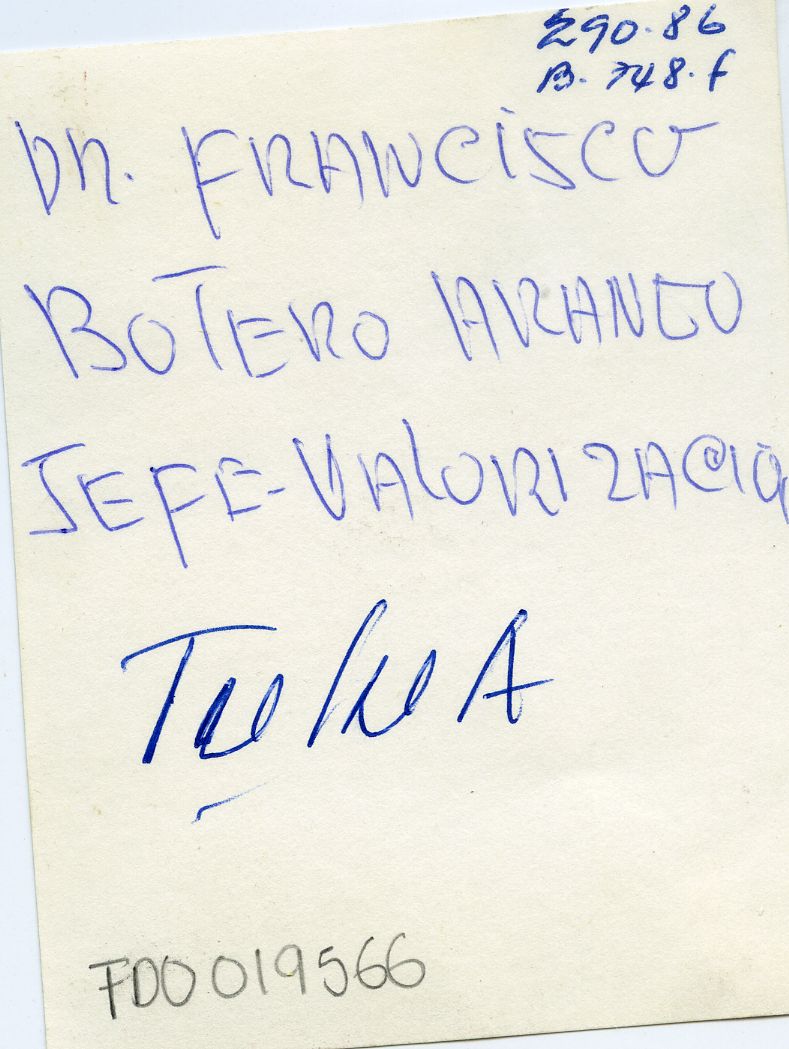 290.86
B. 748.f
DR. FRANCISCO
BOTERO ARANGO
JEFE-VALORIZACIO
FDO 019566